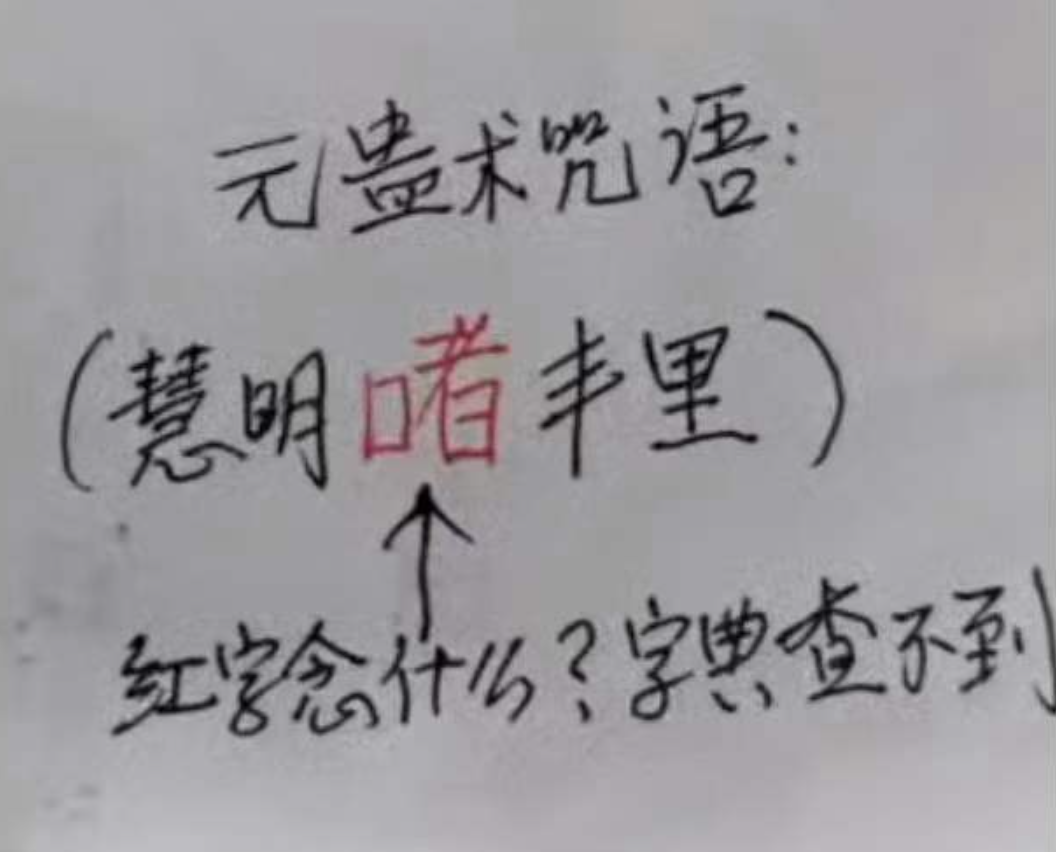 元蛊术咒语:
(慧明啫丰里)
红字念什么?字典查不到